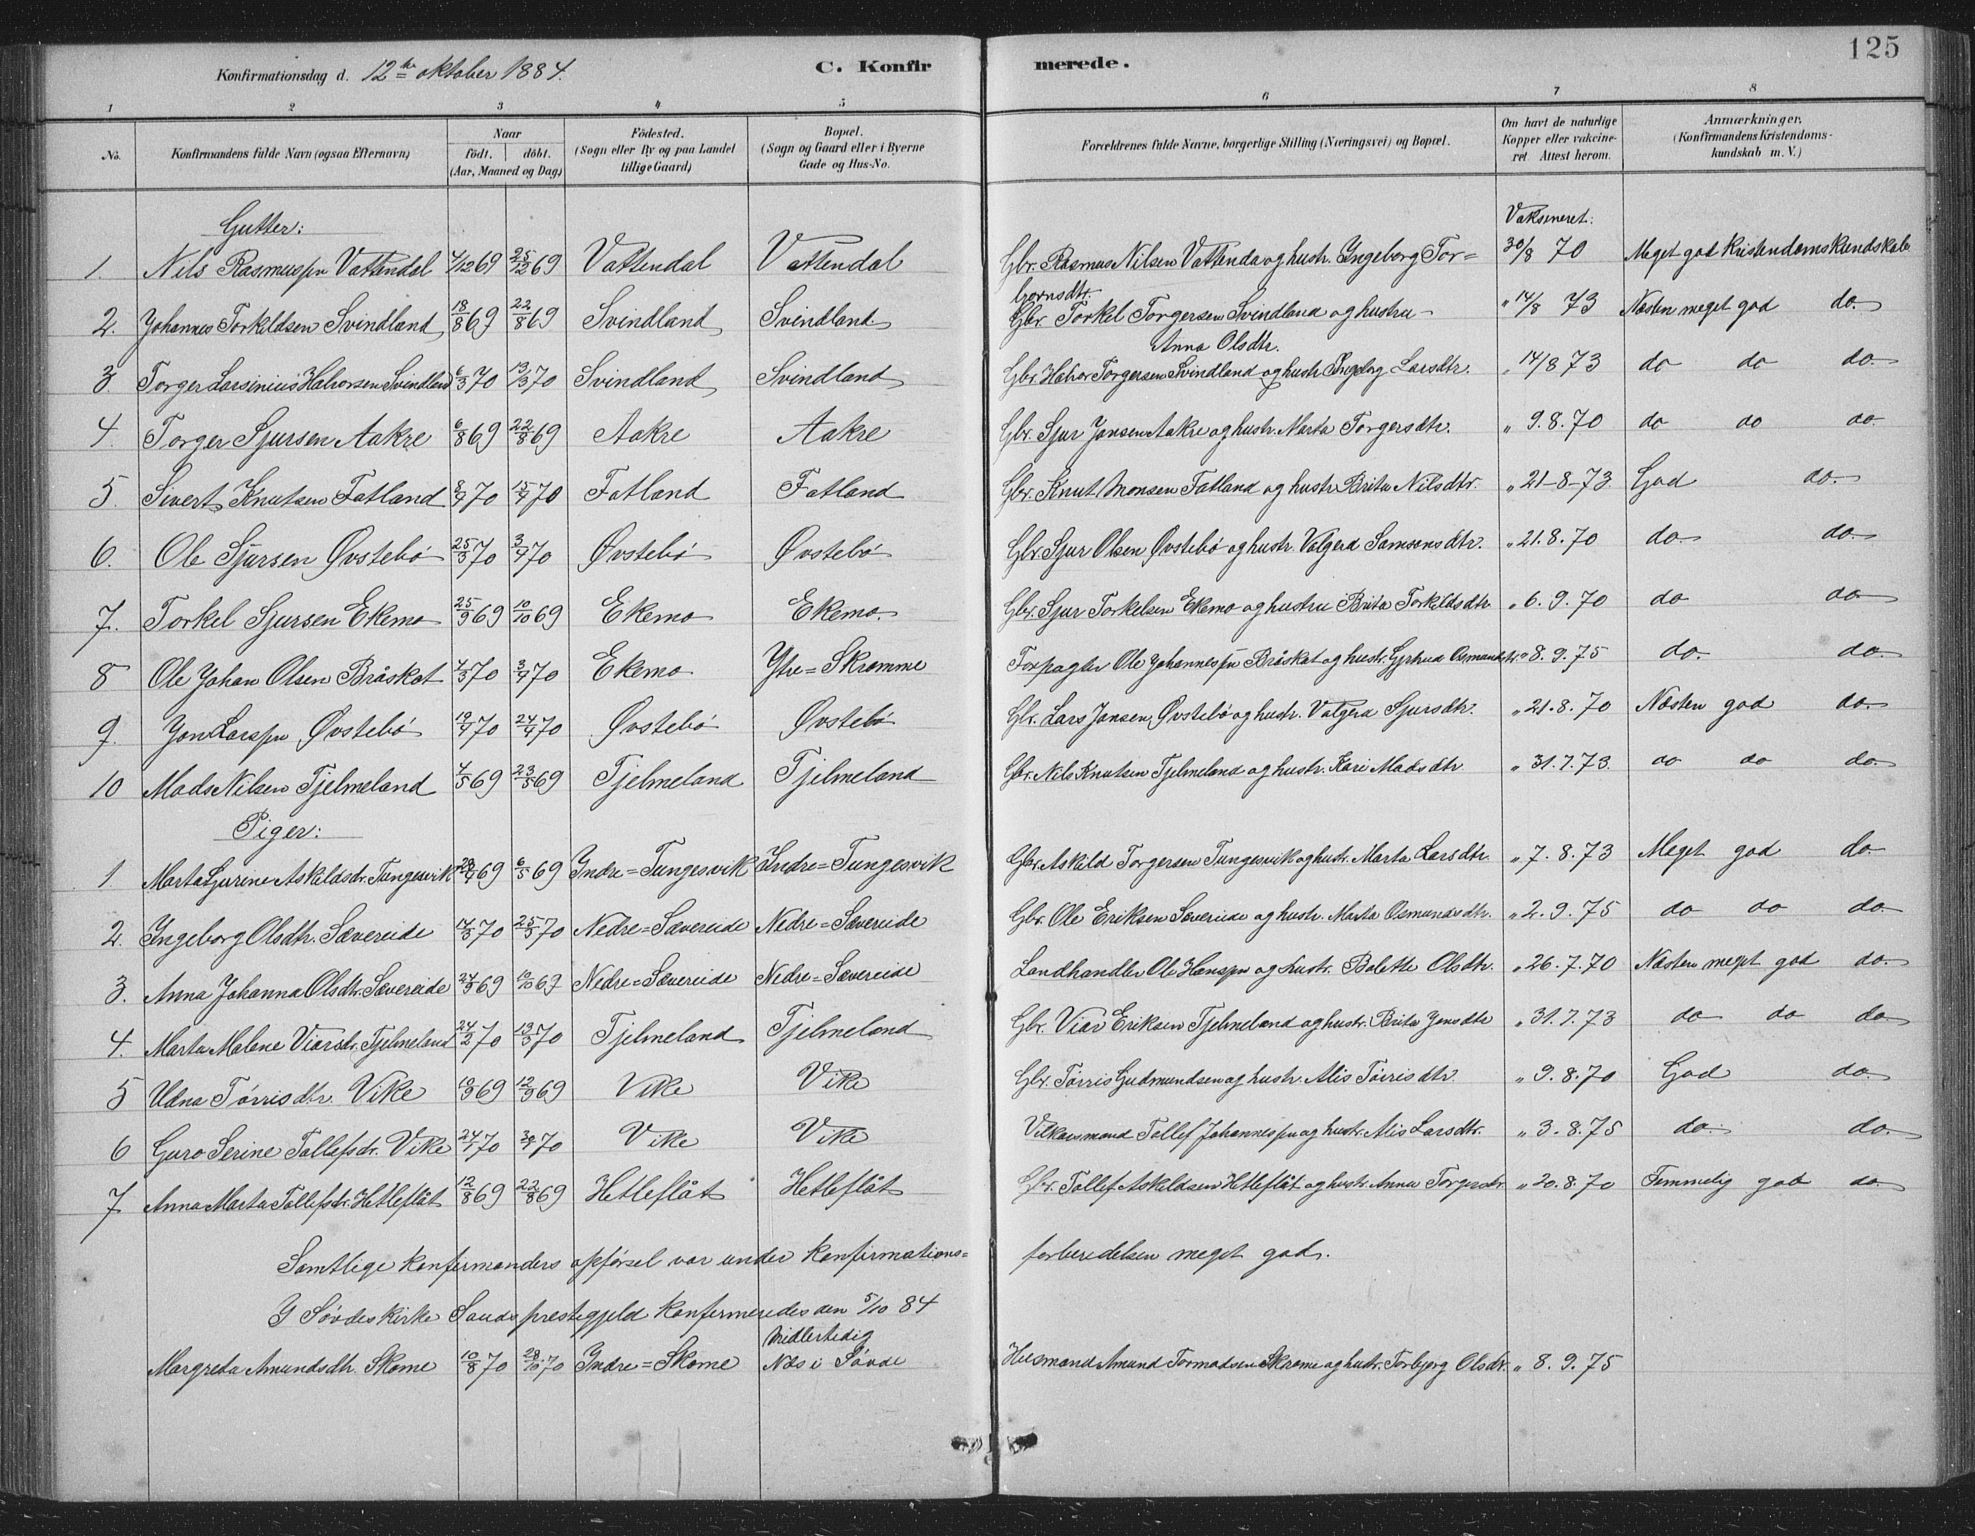 125
Konfirmationsdag d. 12te oktober 1884.
C. Konfirmerede.
1 2 3 4 5 6 7 8
No. | Konfirmandens fulde Navn (ogsaa Efternavn) | Naar födt. döbt. (Aar, Maaned og Dag) | Födested. (Sogn eller By og paa Landet tillige Gaard) | Bopæl. (Sogn og Gaard eller i Byerne Gade og Hus-No. | Forældrenes fulde Navne, borgerlige Stilling (Næringsvei) og Bopæl. | Om havt de naturlige Kopper eller vakcineret Attest herom. | Anmærkninger. (Konfirmandens Kristendomskundskab m. V.)
Gutter: Vaksineret:
1. Nils Rasmuspn Vattendal 4/12 69 25/12 69 Vattendal Vattendal Gbr. Rasmus Nilsen Vattenda og hustr. Ingeborg Tor= 30/8 70 Meget god Kristendomskundskab
bjornsdtr.
2. Johannes Torkildsen Svindland 18/8 69 22/8 69 Svindland Svindland Gbr. Torkel Torgersen Svindland og hustru " 14/8 73 Næsten meget god do.
Anna Olsdtr.
3 Torger Larsinius Halvorsen Svindland 6/3 70 13/3 70 Svindland Svindland Gbr. Halvor Torgersen Svindland og hustr. Ingeborg Larsdtr. " 14/8 73 do do do.
4. Torger Sjursen Aakre 6/8 69 22/8 69 Aakre Aakre Gbr. Sjur Jansen Aakre og hustr. Marta Torgersdtr. " 9.8.70 do do do.
5. Sivert Knutsen Fatland 8/4 70 15/4 70 Fatland Fatland Gbr. Knut Monsen Fatland og hustr Brita Nilsdtr. " 21-8-73 God do.
6. Ole Sjursen Øvstebö 25/3 70 3/4 70 Øvstebö Øvstebö Gbr. Sjur Olsen Øvstebö og hustr. Valgerd Samsonsdtr. " 21.8.70 do. do.
7. Torkel Sjursen Ekemo 25/9 69 10/10 69 Ekemo Ekemo. Gbr. Sjur Torkelsen Ekemo og hustru Brita Torkildsdtr " 6.9.70 do do
8 Ole Johan Olsen Bråskat 4/3 70 3/4 70 Ekemo Ytre=Skromme Forpagter Ole Johannespn Bråskat og hustr. Gjertrud Osmundsdtr. " 8.9.75 do. do.
9. Jon Larspn Øvstebö 19/4 70 24/4 70 Øvstebö Øvstebö Gbr. Lars Jansen Øvstebö og hustr. Valgerd Sjursdtr. " 21.8.70 Næsten god do.
10 Mads Nilsen Tjelmeland 4/5 69 23/5 69 Tjelmeland Tjelmeland Gbr. Nils Knutsen Tjelmeland og hustr. Kari Madsdtr. " 31.7.73. do do do.
Piger:
1 Marta Gurine Askildsdr. Tungesvik 28/4 69 6/5 69 Indre=Tungesvik Indre=Tungesvik Gbr. Askild Torgersen Tungesvik og hustr. Marta Larsdtr. " 7.8.73 Meget god do.
2. Ingeborg Olsdtr. Sævereide 14/3 70 25/3 70 Nedre=Sævereide Nedre=Sævereide Gbr. Ole Eriksen Sævereide og hustr. Marta Osmundsdtr. " 2.9.75 do do do.
3. Anna Johanna Olsdtr. Sævereide 24/9 69 10/10 69 Nedre=Sævereide Nedre=Sævereide Landhandler Ole Hanspn og hustr. Bolette Olsdtr. " 26.7.70 Næsten meget god do.
4. Marta Malene Viarsdtr. Tjelmeland 24/2 70 13/3 70 Tjelmeland Tjelmeland Gbr. Viar Eriksen Tjelmeland og hustr. Brita Jonsdtr " 31.7.73 do do do.
5 Udna Törrisdtr. Vike 10/9 69 12/9 69 Vike Vike Gbr. Törris Gudmundsen og hustr. Alis Törrisdtr " 9.8.70 God do.
6 Guro Serine Tollefsdr. Vike 24/1 70 70 Vike Vike Tollef Johannespn og hustr. Alis Larsdtr. " 3.8.75 do. do.
7 Anna Marta Tollefsdr. Hetleflåt 12/8 69 22/8 69 Hetleflåt Hetleflåt Gbr. Tollef Askildsen Hetleflåt og hustr. Anna Torgersdr " 20.8.70 Temmelig god do.
Samtlige konfirmanders opförsel var under konfirmations= forberedelsen meget god.
I Sövdes kirke Sauds prestegjeld konfirmeredes den 5/10 84
Margreta Amundsdtr. Skome 10/8 70 28/10 70 Indre=Skome Midlertidig Nes i Sövde Husmand Amund Tormodsen Skrome og hustr. Torbjorg Olsdtr. " 8.9.75